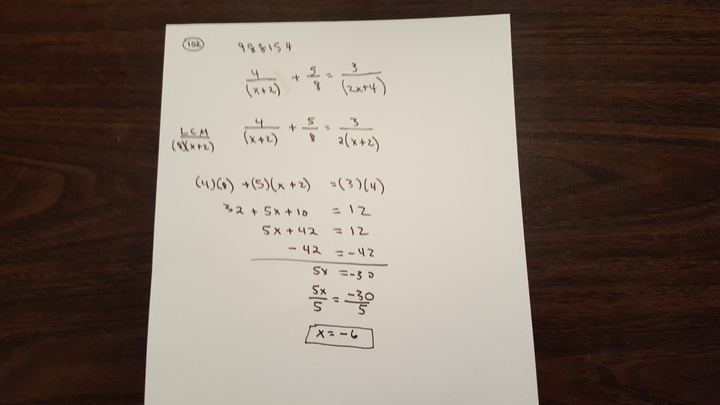 102 988154
4/(x+2) + 5/8 = 3/(2x+4)
LCM (8)(x+2) 4/(x+2) + 5/8 = 3/2(x+2)
(4)(8) + (5)(x+2) = (3)(4)
32 + 5x + 10 = 12
5x + 42 = 12
- 42 = -42
5x = -30
5x/5 = -30/5
x = -6